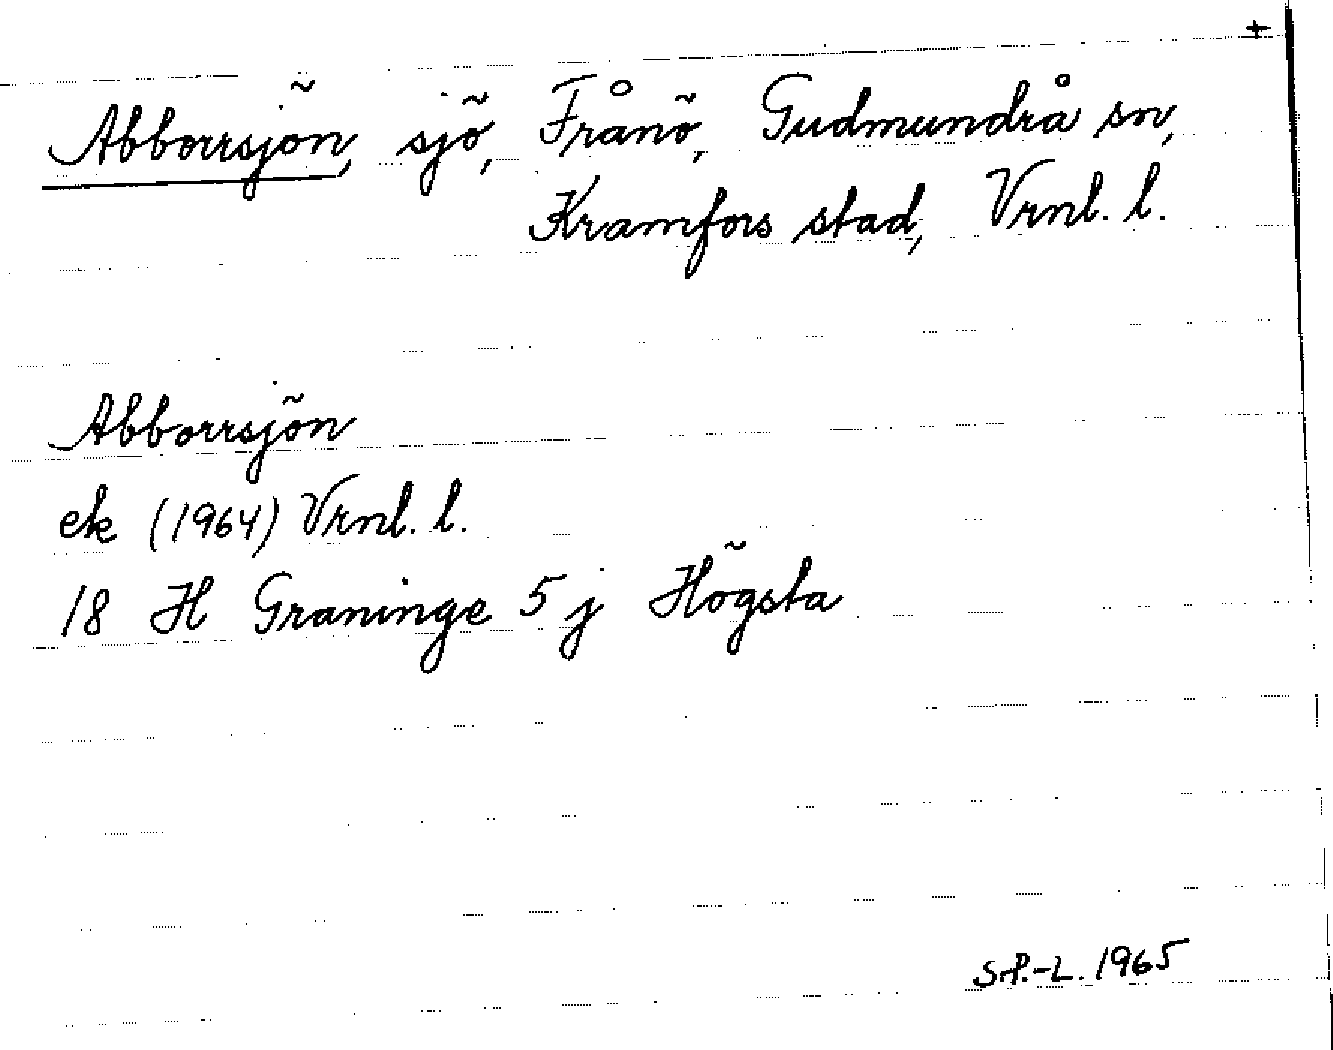 +
Abborrsjön, sjö, Frånö, Gudmundrå sn,
Kramfors stad, Vrnl. l.
Abborrsjön
ek (1964) Vrnl. l.
18 H Graninge 5 j Högsta
S.P.-L. 1965